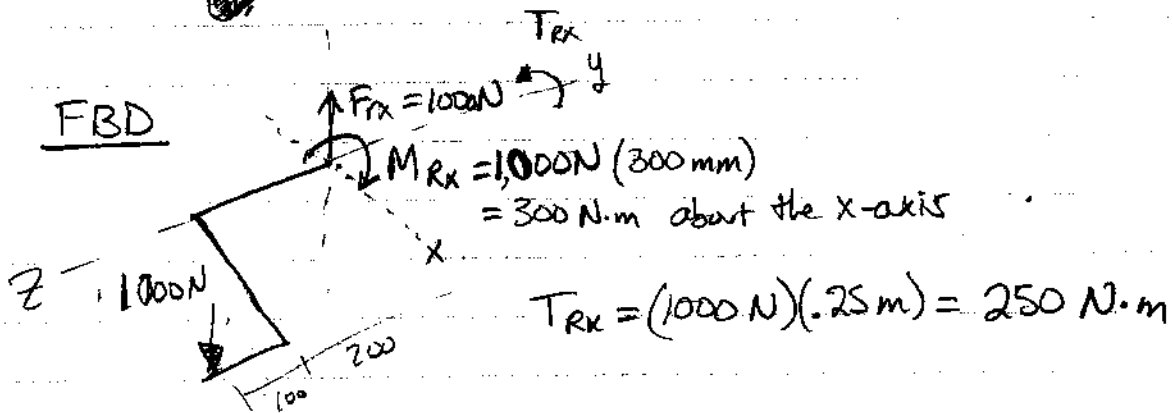 T_Rx
y
FBD
F_rx = 1000N
M_Rx = 1,000N (300 mm)
= 300 N·m about the x-axis
x
z
1000N
T_Rx = (1000 N)(.25 m) = 250 N·m
200
100